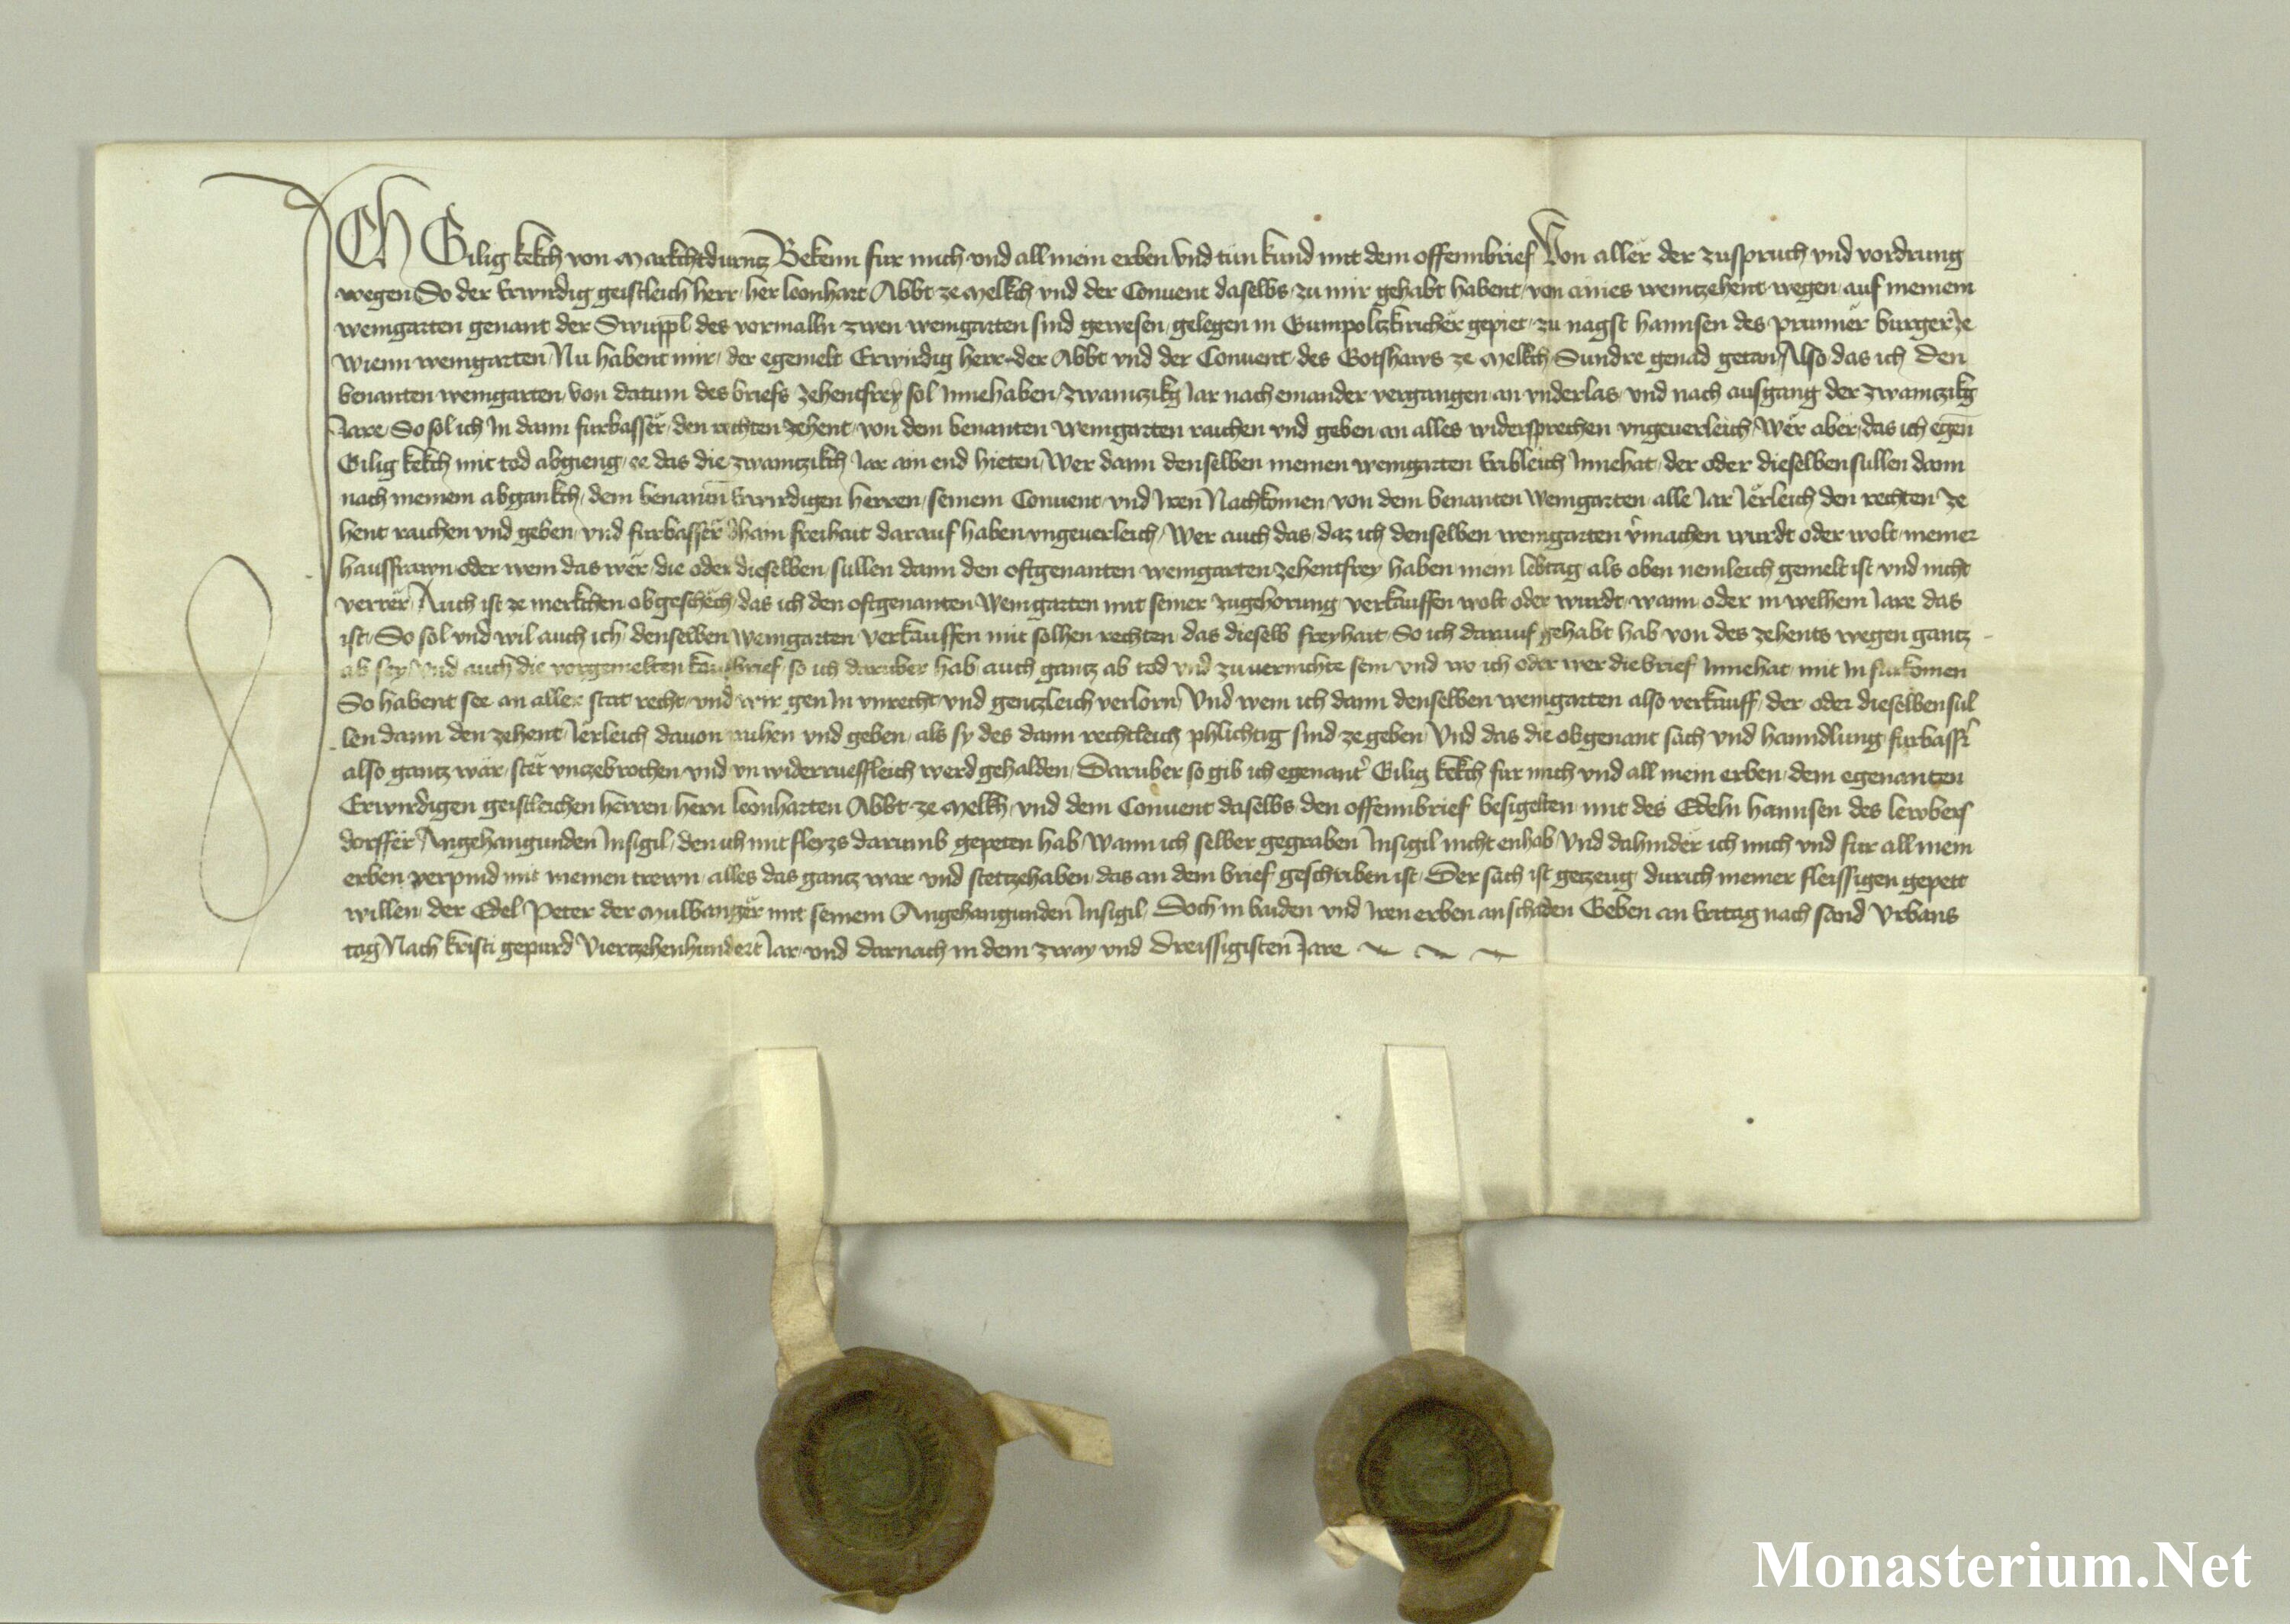 Ich Gilig kekch von Marktdurnz Bekenn fur mich vnd all mein erben Vnd tun kund mit dem offennbrief Von aller der zuspruch vnd vordrung
wegen So der Erwirdig geistleich herr her leonhart Abbt ze Melkch vnd der Conuent daselbs zu mir gehabt habent von aines weintzehent wegen auf meinem
weingarten genant der Swuppl des vormalln zwen weingarten sind gewesen gelegen in Gumpoltzkiricher gepiet zu nagst hannsen des prunner burger ze
wienn weingarten Nu habent mir der egemelt Erwirdig herr der Abbt vnd der Conuent des Gotshaws ze Melkch Sundre genad getan Also das ich den
benanten weingarten von datum des briefs zehentfrey sol Innehaben zwaintzikg Jar nach einander vergangen an vnderlas vnd nach ausgang der zwaintzikg
Jare So sol ich In dann furbasser den rechten zehent von dem benanten weingarten raichen vnd geben an alles widersprechen vngeuerleich Wër aber das ich egen
Gilig kekch mit tod abgieng ee das die zwaintzikch Jar ain end hieten Wer dann denselben meinen weingarten Eribleich Innehat der oder dieselben sullen dann
nach meinem abgankch dem benanten Erwirdigen herren seinem Conuent vnd Iren Nachkomen von dem benanten Weingarten alle Jar Jërleich den rechten ze
hent raichen vnd geben vnd furbasser dhain freihait darauf haben vngeuerleich Wer auch das daz ich denselben weingarten vmachen wurdt oder wolt meiner
hausfrawn oder wem das wër die oder dieselben sullen dann den oftgenanten weingarten zehentfrey haben mein lebtag als oben nemleich gemelt ist vnd nicht
verrer Auch ist ze merkchen ob geschëch das ich den oftgenanten Weingarten mit seiner zugehorung verkauffen wolt oder wurdt wann oder in welhem Jare das
ist So sol vnd wil auch ich denselben Weingarten verkauffen mit solhen rechten das dieselb freyhait So ich darauf gehabt hab von des zehents wegen gantz
ab sey Vnd auch die vorgemelten kaufbrief so ich daruber hab auch gantz ab tod vnd zuuernichte sein vnd wo ich oder wer die brief Innehat mit In furkomen
So habent see an aller stat recht vnd wir gen In vnrecht vnd gentzleich verlorn Vnd wem ich dann denselben weingarten also verkauff der oder dieselben sul
len dann den zehent Jërleich dauon raihen vnd geben als sy des dann rechtleich phlichtig sind ze geben Vnd das die obgenant sach vnd hanndlung furbasser
also gantz war stët vnzebrochen vnd vnwiderruefleich werd gehalden Daruber so gib ich egenanter Gilig kekch fur mich vnd all mein erben dem egenanten
Erwirdigen geistleichen herren hern leonharten Abbt ze Melkh vnd dem Conuent daselbs den offennbrief besigelten mit des Edeln hannsen des lewbers
dorffer Angehangunden Insigil den ich mit fleyzs darumb gepeten hab Wann ich selber gegraben Insigil nicht enhab Vnd dahinder ich mich vnd fur all mein
erben verpind mit meinen trewn alles das gantz war vnd stet zehaben das an dem brief geschriben ist Der sach ist getzeug durich meiner fleissigen gepett
willen der Edel Peter der Mulbanger mit seinem Angehangunden Insigil Doch in baiden vnd Iren erben an schaden Geben an Eritag nach sand Vrbans
tag Nach kristi gepurd Viertzehenhundert Jar vnd darnach in dem zway vnd dreissigisten Jare
Monasterium.Net